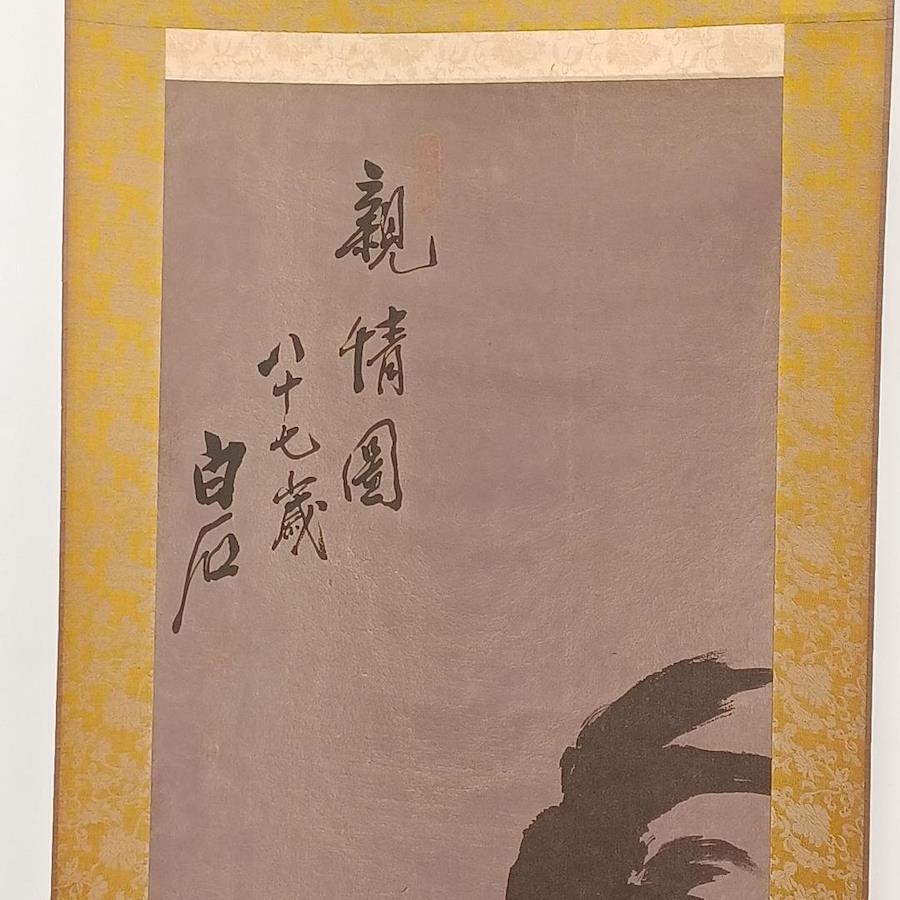 親情圖
八十七歲
白石